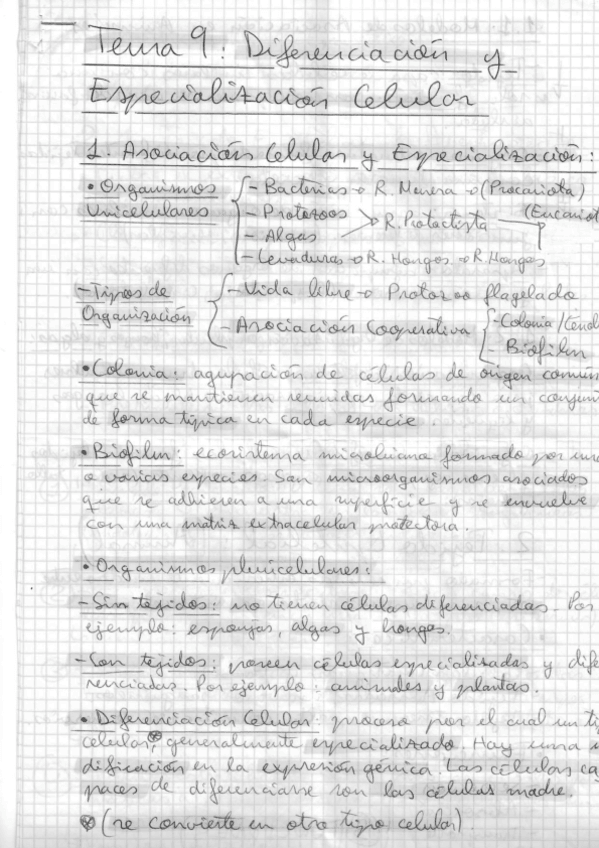 Tema 9: Diferenciación y
Especialización Celular
1. Asociación Celular y Especialización:
• Organismos Unicelulares
- Bacterias → R. Monera → (Procariota)
- Protozoos
- Algas
R. Protoctista
(Eucariot
- Levaduras → R. Hongos → R. Hongos
- Tipos de Organización
- Vida libre → Protozoo flagelado
- Asociación Cooperativa
- Colonia /Cenob
- Biofilm
• Colonia: agrupación de células de origen común
que se mantienen reunidas formando un conjun
de forma típica en cada especie.
• Biofilm: ecosistema microbiano formado por una
o varias especies. Son microorganismos asociados
que se adhieren a una superficie y se envuelve
con una matriz extracelular protectora.
• Organismos pluricelulares:
- Sin tejidos: no tienen células diferenciadas. Por
ejemplo: esponjas, algas y hongos.
- Con tejidos: poseen células especializadas y dife
renciadas. Por ejemplo: animales y plantas.
• Diferenciación Celular: proceso por el cual un ti
celular, generalmente especializado. Hay una
dificación en la expresión génica. Las células ca
paces de diferenciarse son las células madre.
(se convierte en otro tipo celular).